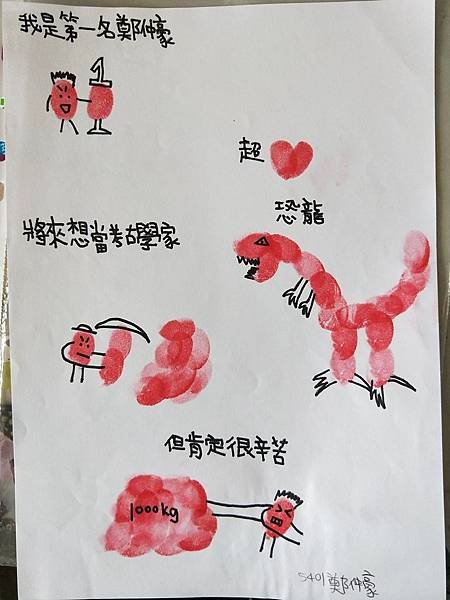 我是第一名鄭仲豪
1
超
恐龍
將來想當考古學家
但肯定很辛苦
1000kg
5401鄭仲豪